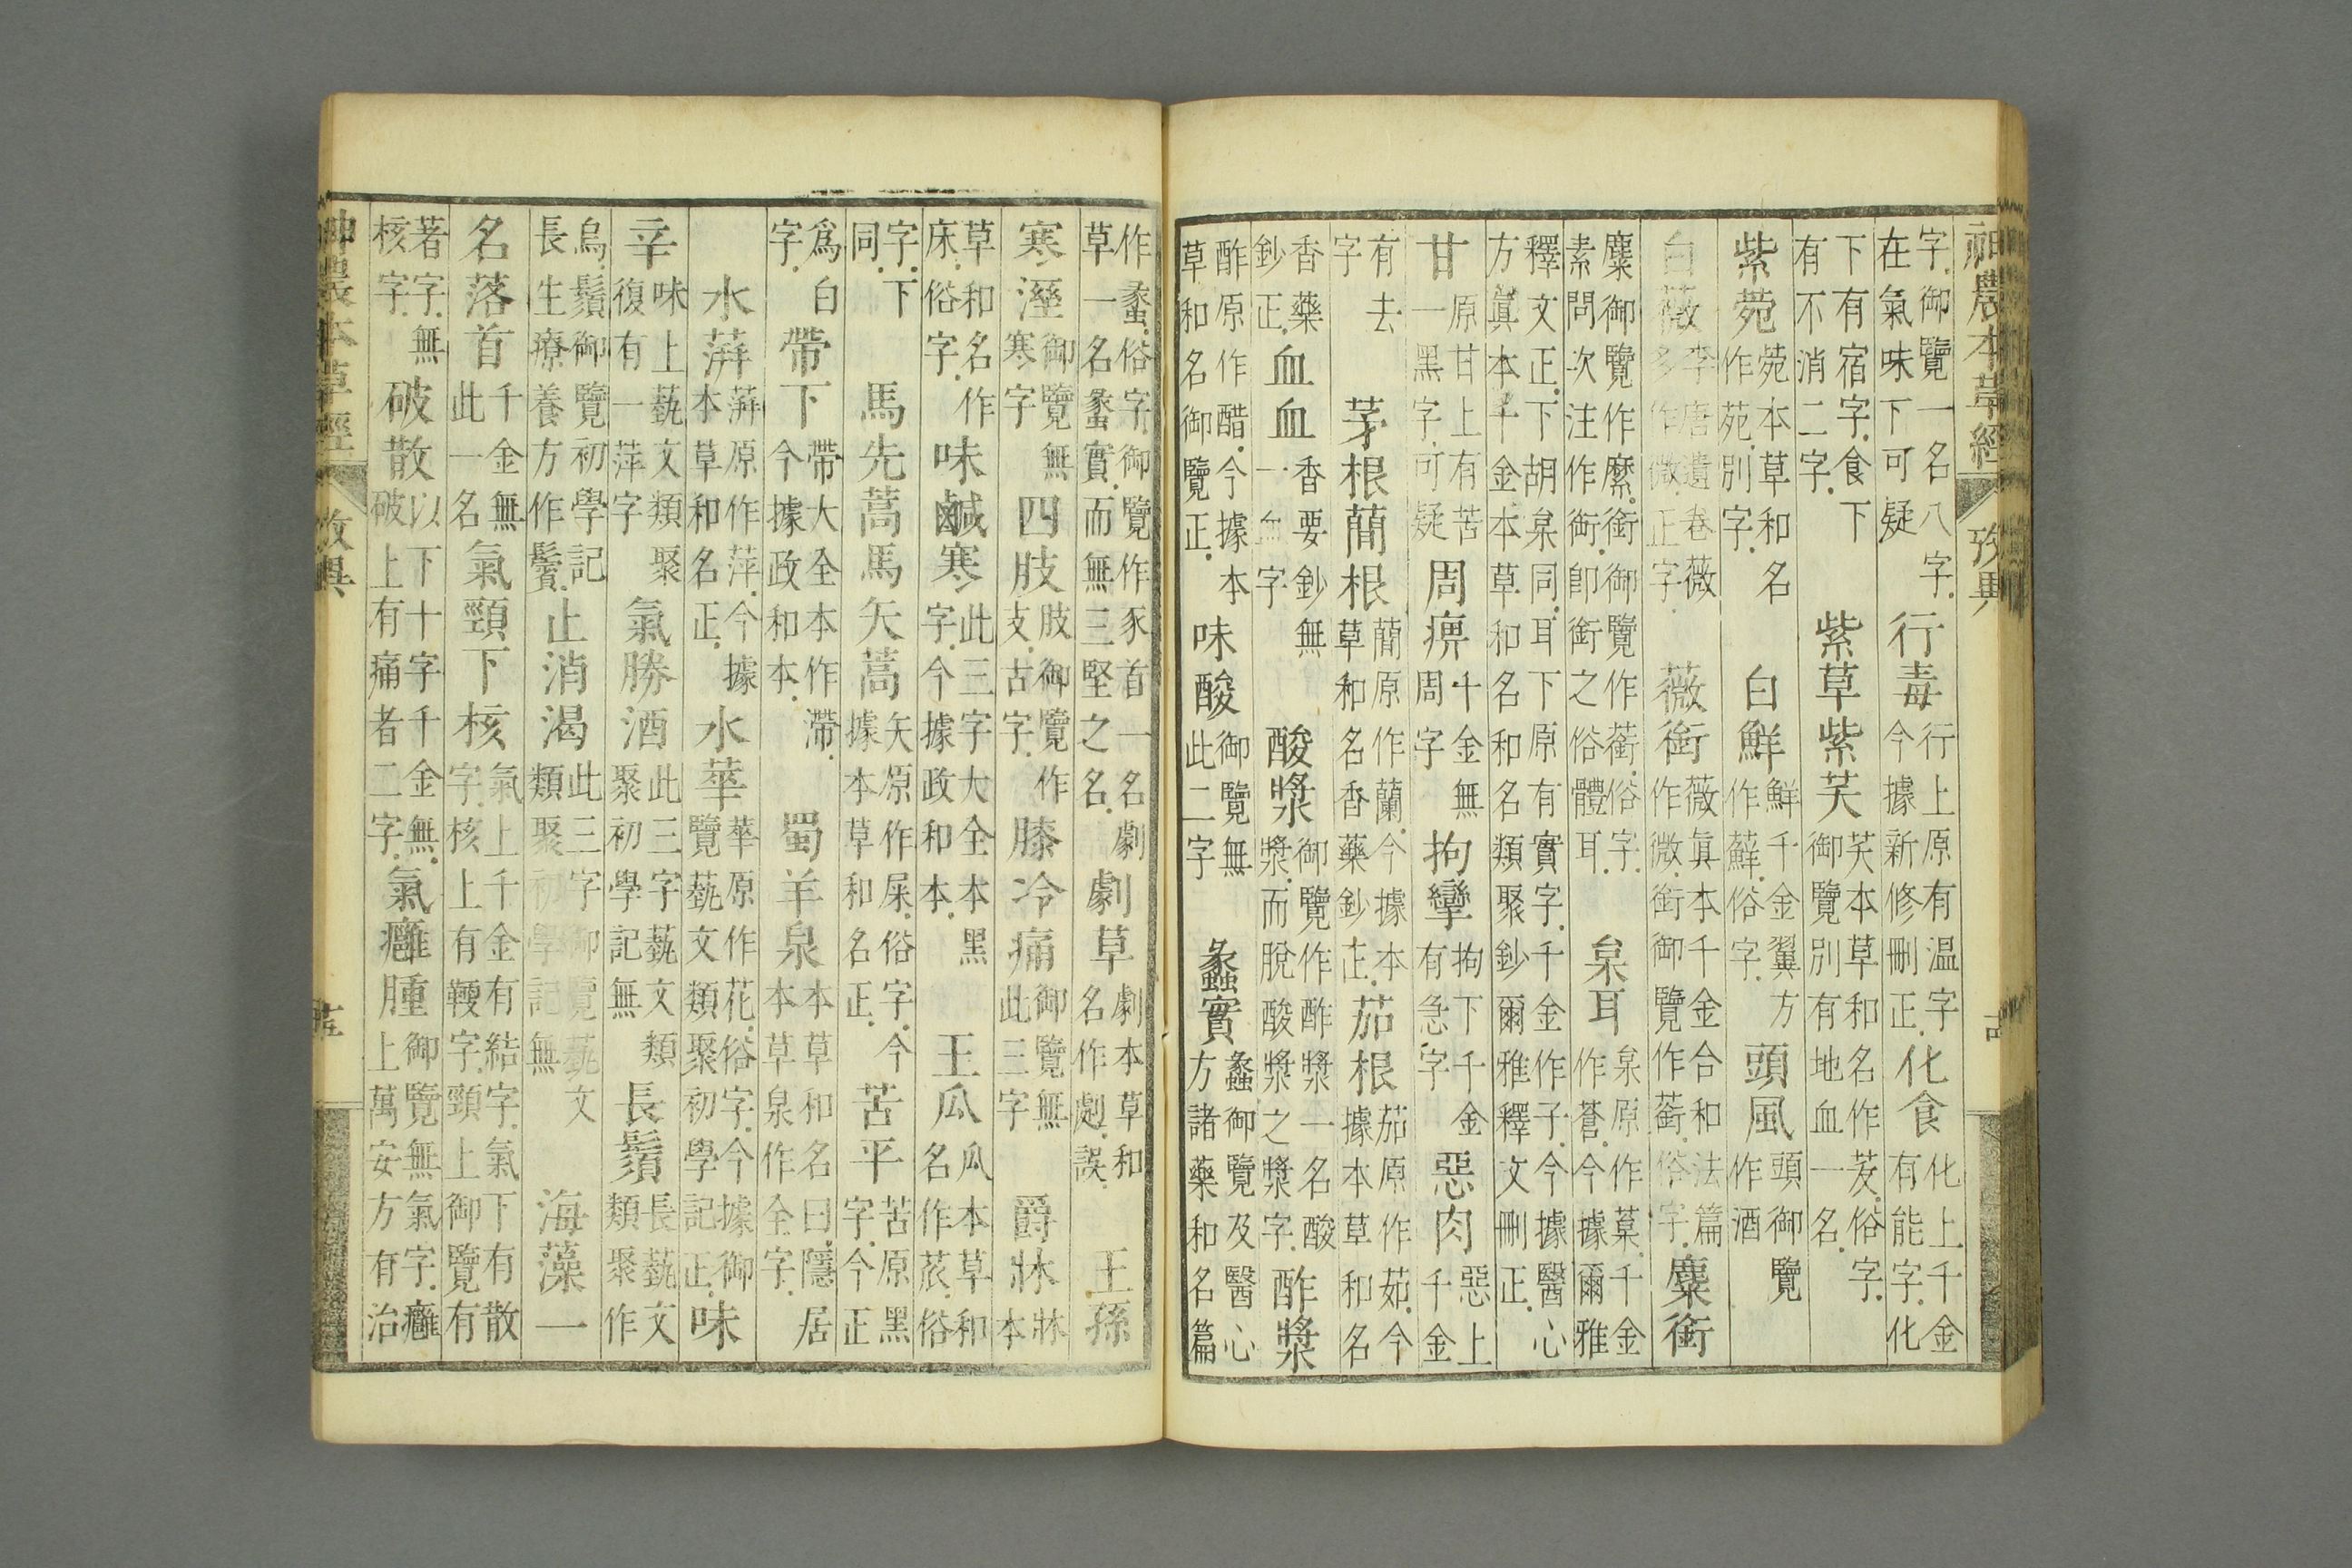 神農本草經 攷異
字.御覽一名八字.在氣味下可疑 行毒 行上原有温字今據新修刪正. 化食 化上千金有能字.化
下有宿字.食下有不消二字. 紫草紫芺 芺本草和名作芨.俗字.御覽別有地血一名.
紫菀 菀本草和名作苑.別字. 白鮮 鮮千金翼方作蘚.俗字. 頭風 頭御覽作酒
白薇 李唐遺卷薇多作微.正字. 薇銜 薇眞本千金合和法篇作微.銜御覽作蘅.俗字. 麋銜
麋御覽作麇.銜御覽作蘅.俗字.素問次注作衘.卽銜之俗體耳. 枲耳 枲原作葈.千金作蒼.今據爾雅
釋文正.下胡枲同.耳下原有實字.千金作子.今據醫心方眞本千金本草和名和名類聚鈔爾雅釋文刪正.
甘 原甘上有苦一黑字.可疑 周痹 十金無周字 拘攣 拘下千金有急字 惡肉 惡上千金
有去字 茅根蕳根 蕳原作蘭.今據本草和名香藥鈔正. 茄根 茄原作茹.今據本草和名
香藥鈔正. 血血 香要鈔無一血字 酸漿 御覽作酢漿一名酸漿.而脫酸漿之漿字. 酢漿
酢原作醋.今據本草和名御覽正. 味酸 御覽無此二字 蠡實 蠡御覽及醫心方諸藥和名篇
作蠡.俗字.御覽作豕首一名劇草一名蠡實.而無三堅之名. 劇草 劇本草和名作㓺.誤. 王孫
寒溼 御覽無寒字 四肢 肢御覽作支.古字. 膝冷痛 御覽無此三字 爵牀 牀本
草和名作床.俗字. 味鹹寒 此三字大全本黑字.今據政和本. 王瓜 瓜本草和名作苽.俗
字.下同. 馬先蒿馬矢蒿 矢原作屎.俗字.今據本草和名正. 苦平 苦原黑字.今正
爲白字. 帶下 帶大全本作滯.今據政和本. 蜀羊泉 本草和名曰.隱居本草泉作全字.
水蓱 蓱原作萍.今據本草和名正. 水華 華原作花.俗字.今據御覽藝文類聚初學記正. 味
辛 味上藝文類聚復有一萍字 氣勝酒 此三字藝文類聚初學記無 長鬚 長藝文類聚作
烏.鬚御覽初學記長生療養方作鬢. 止消渴 此三字御覽藝文類聚初學記無 海藻一
名落首 千金無此一名 氣頸下核 氣上千金有結字.氣下有散字.核上有鞕字.頸上御覽有
著字.無核字. 破散 以下十字千金無.破上有痛者二字. 氣癰腫 御覽無氣字.癰上萬安方有治
神農本草經 攷異